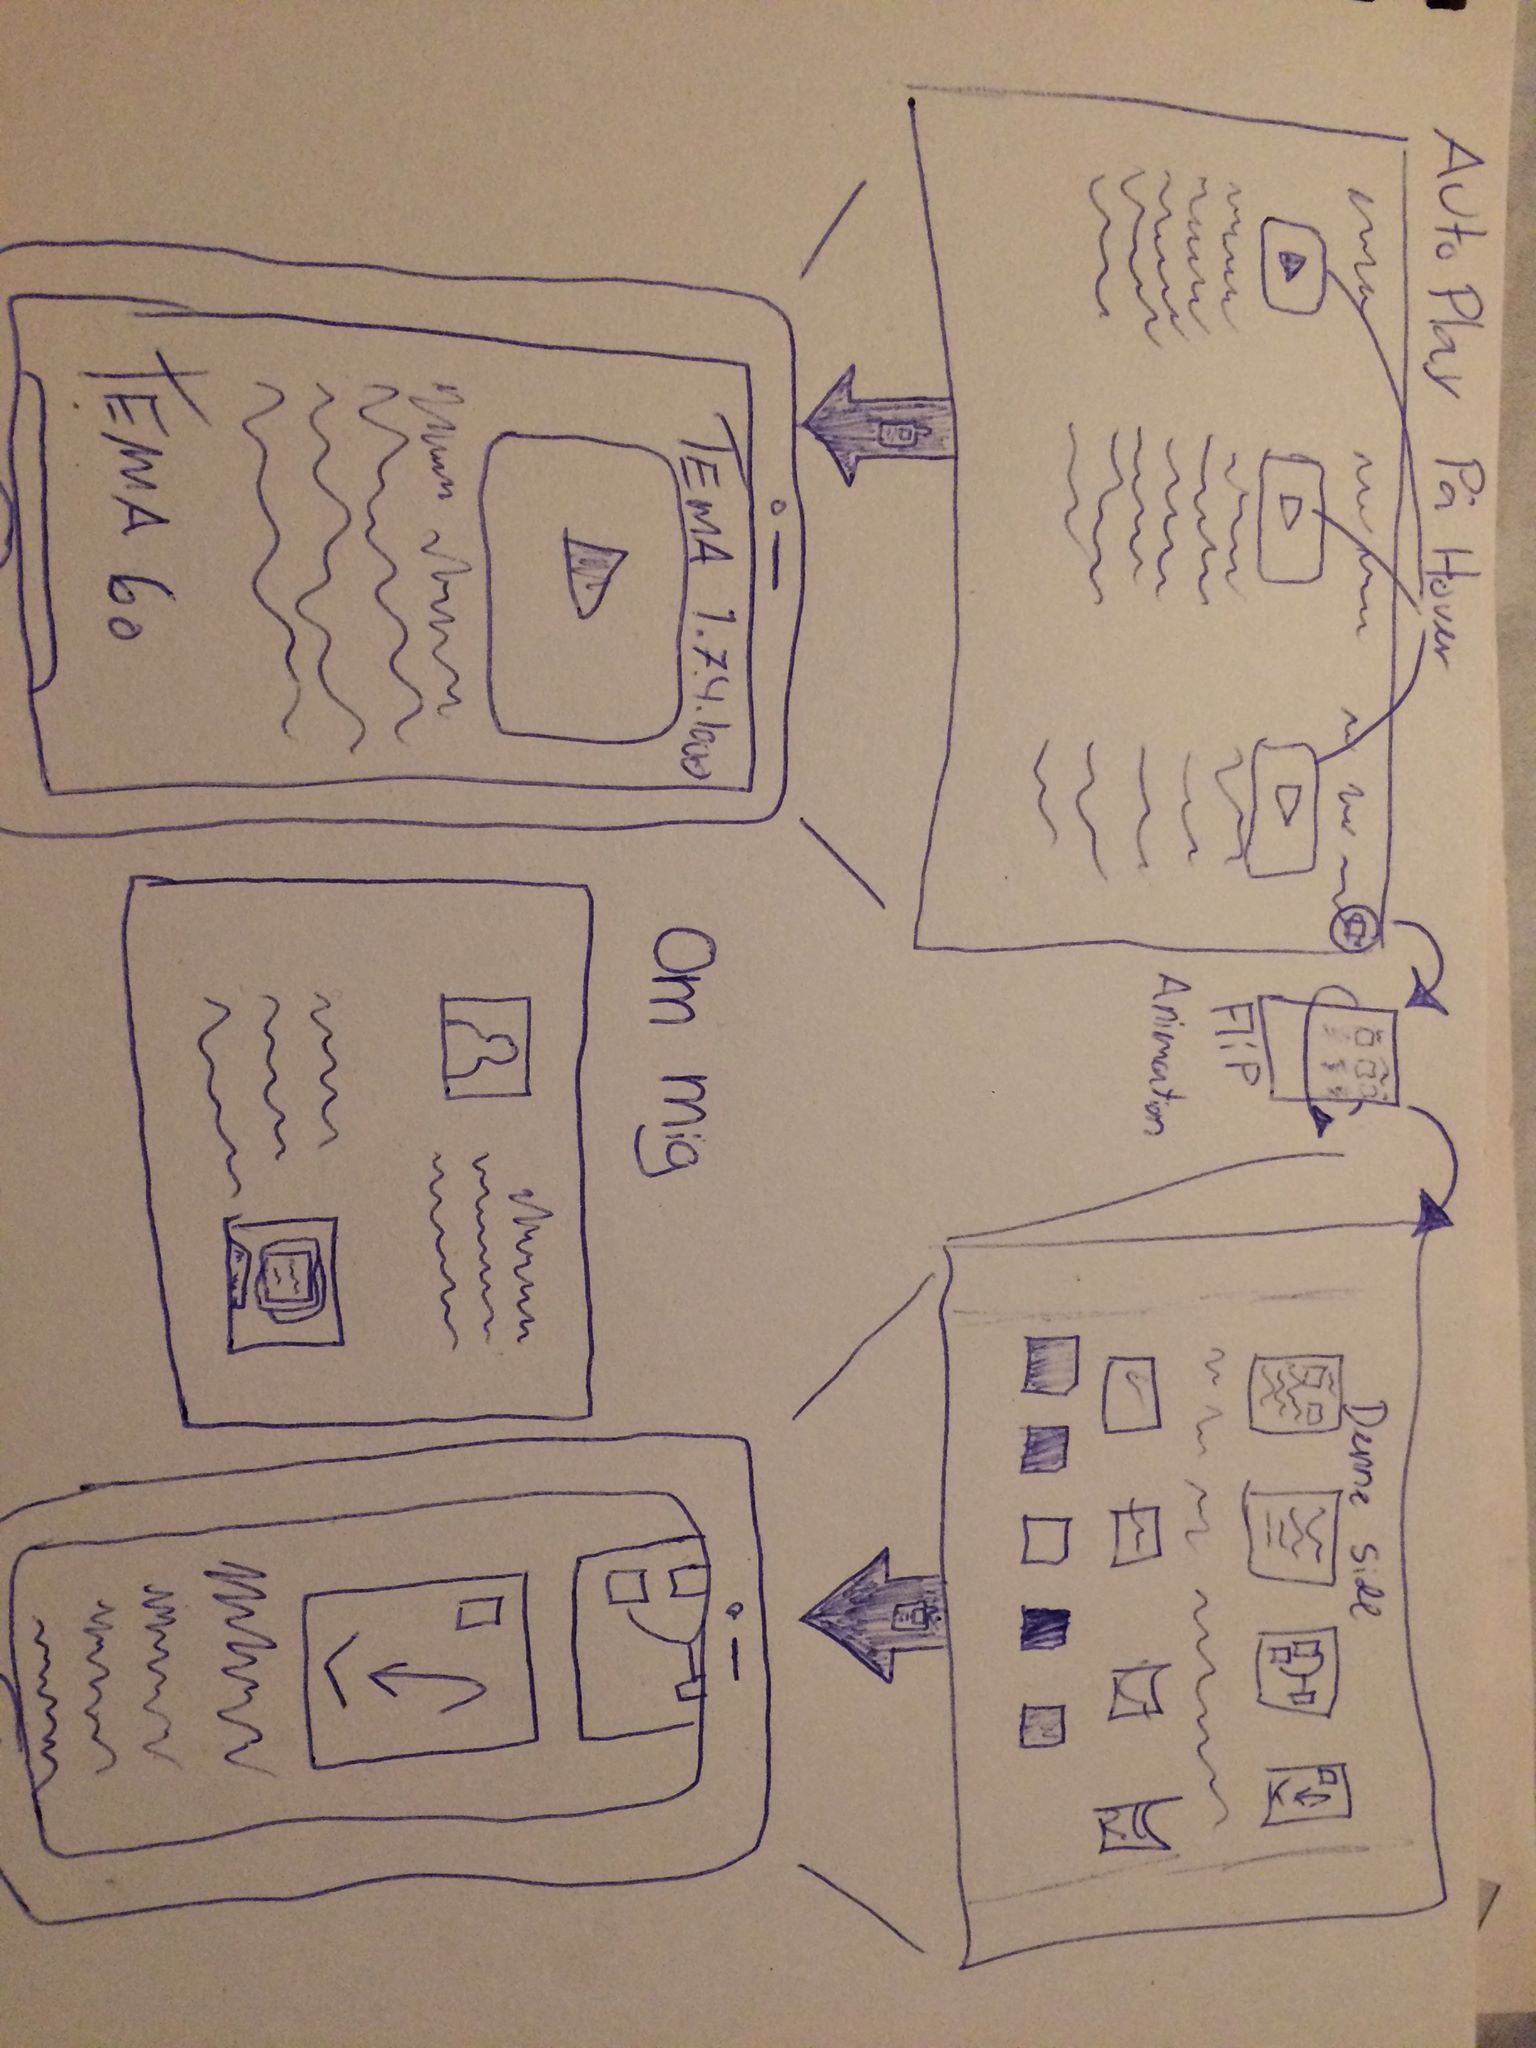 Auto Play På Hover
FliP
Animation
Denne side
TEMA 1.7.4.
TEMA 60
Om mig